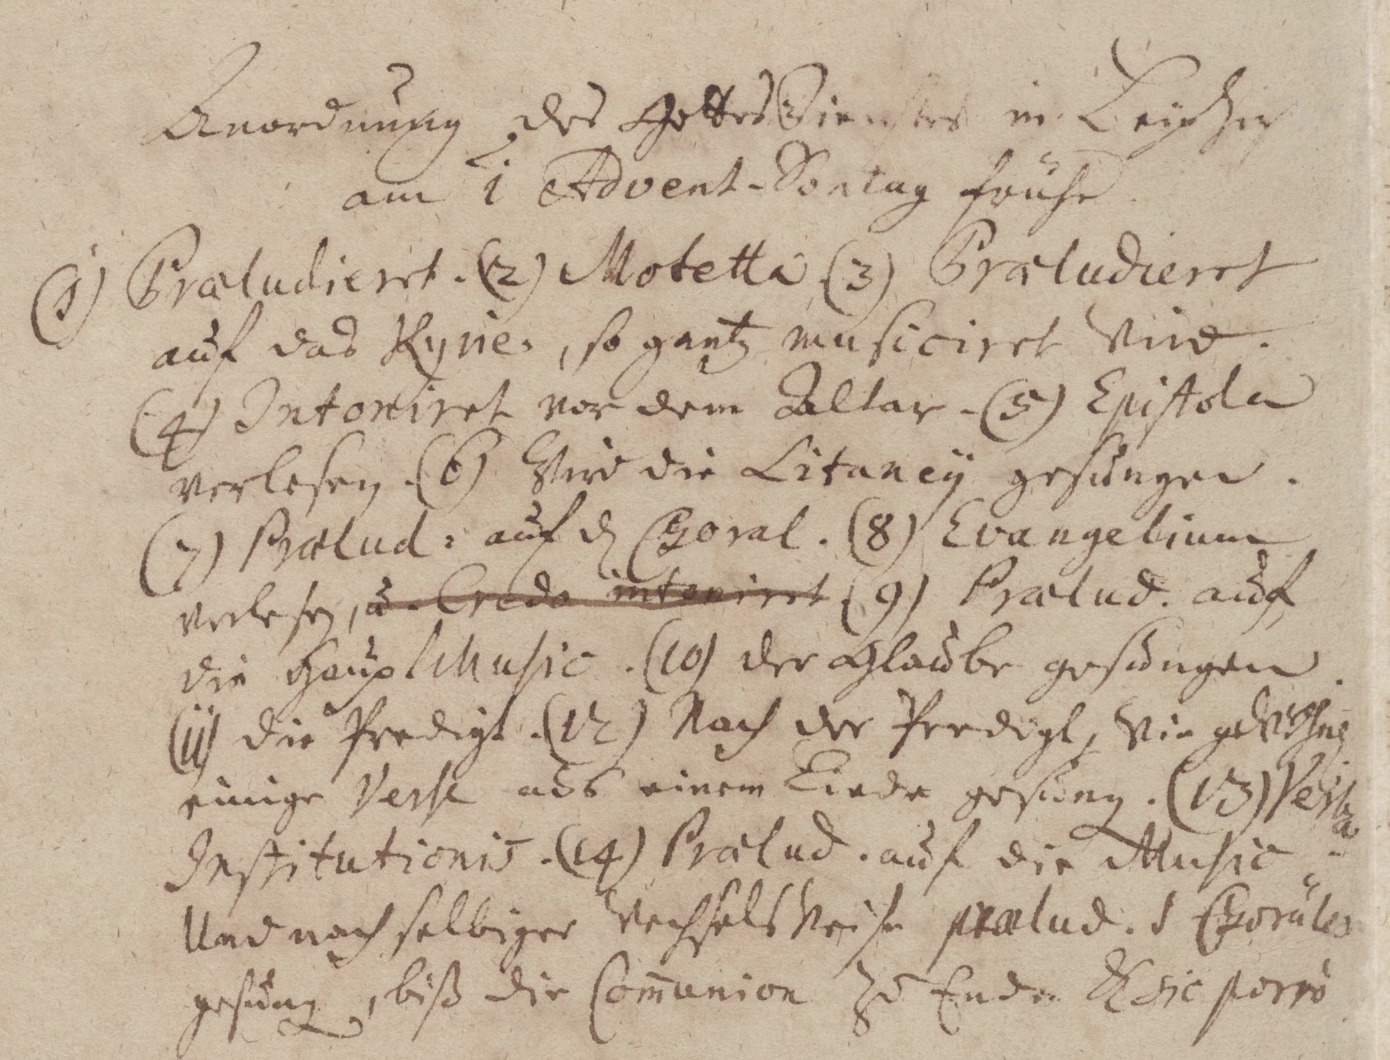 Anordnung des GottesDienstes in Leipzig
am 1 Advent-Sontag frühe
(1) Præludieret. (2) Motetta (3) Præludieret
auf das Kyrie, so gantz musiciret wird.
(4) Intoniret vor dem Altar. (5) Epistola
verlesen. (6) Wird die Litaney gesungen.
(7) Prælud: auf d Choral. (8) Evangelium
verlesen, u. Credo intoniret (9) Prælud. auf
die HauptMusic. (10) der Glaube gesungen.
(11) die Predigt. (12) Nach der Predigt, wie gewöhnl
einige Verse aus einem Liede gesung. (13) Verba
Institutionis. (14) Prælud. auf die Music.
Und nach selbiger wechselsweise prælud. v Choräle
gesung, biß die Com̄union zu Ende & sic porrò